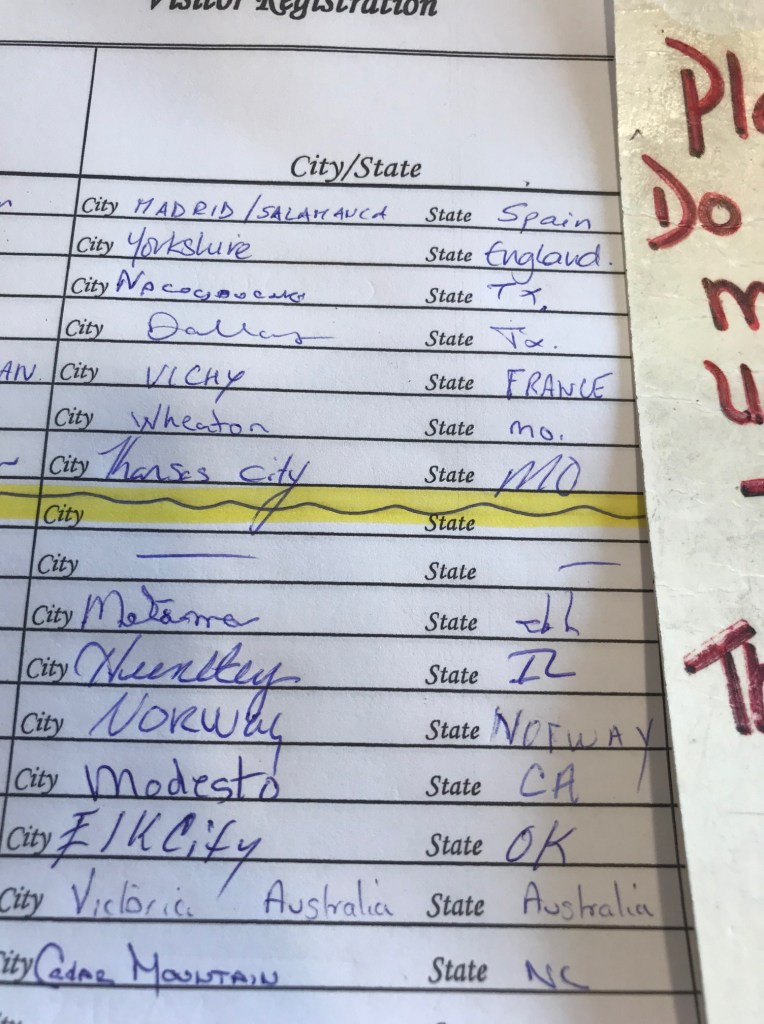 Visitor Registration
City/State
City MADRID/SALAMANCA State Spain
City Yorkshire State England.
City State TX.
City Dallas State Tx.
AN. City VICHY State FRANCE
City Wheaton State mo.
City Kansas City State MO
City State
City — State —
City Metamora State
City Huntley State IL
City NORWAY State NORWAY
City Modesto State CA
City Elk City State OK
City Victoria Australia State Australia
City Cedar Mountain State NC
Do